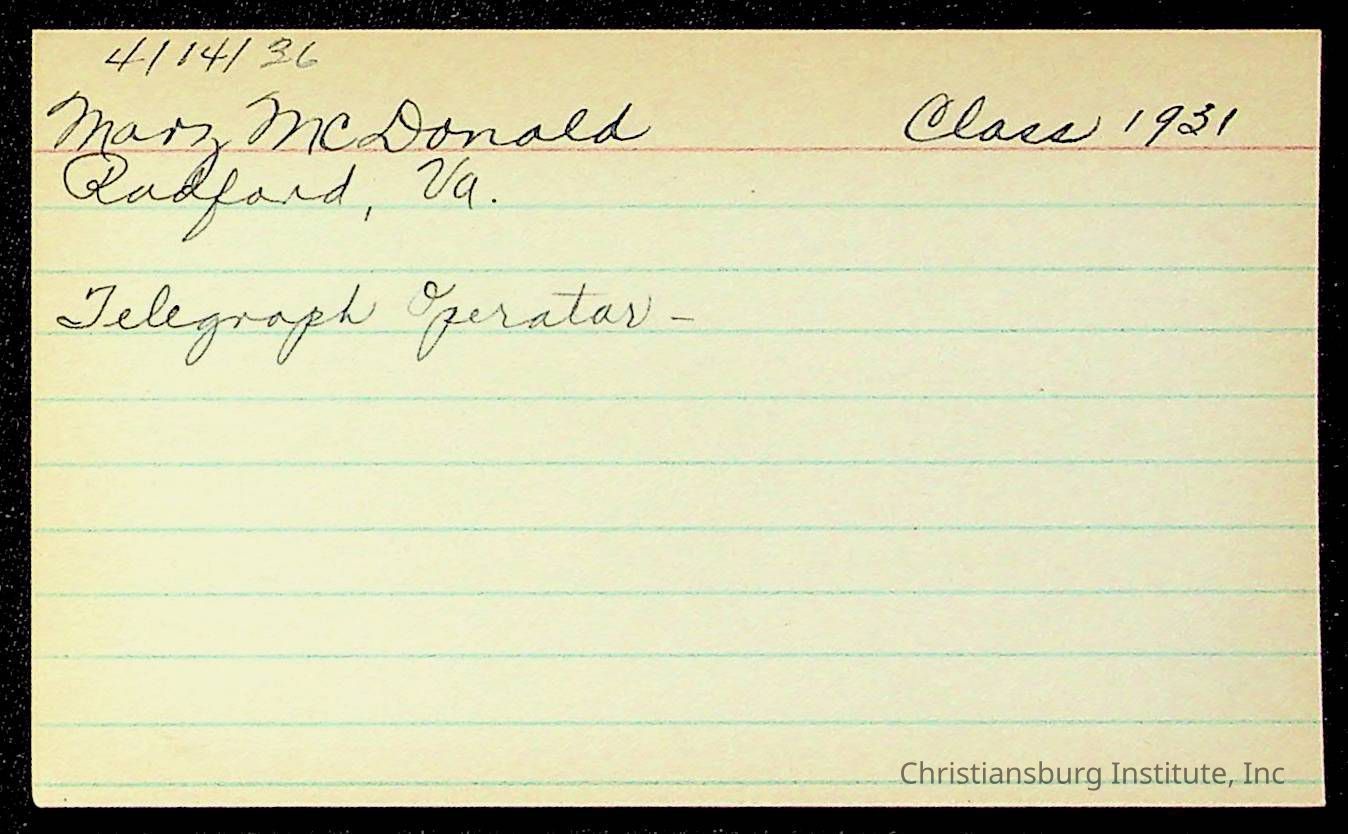 4/14/36
Mary McDonald Class 1931
Radford, Va.
Telegraph Operator -
Christiansburg Institute, Inc